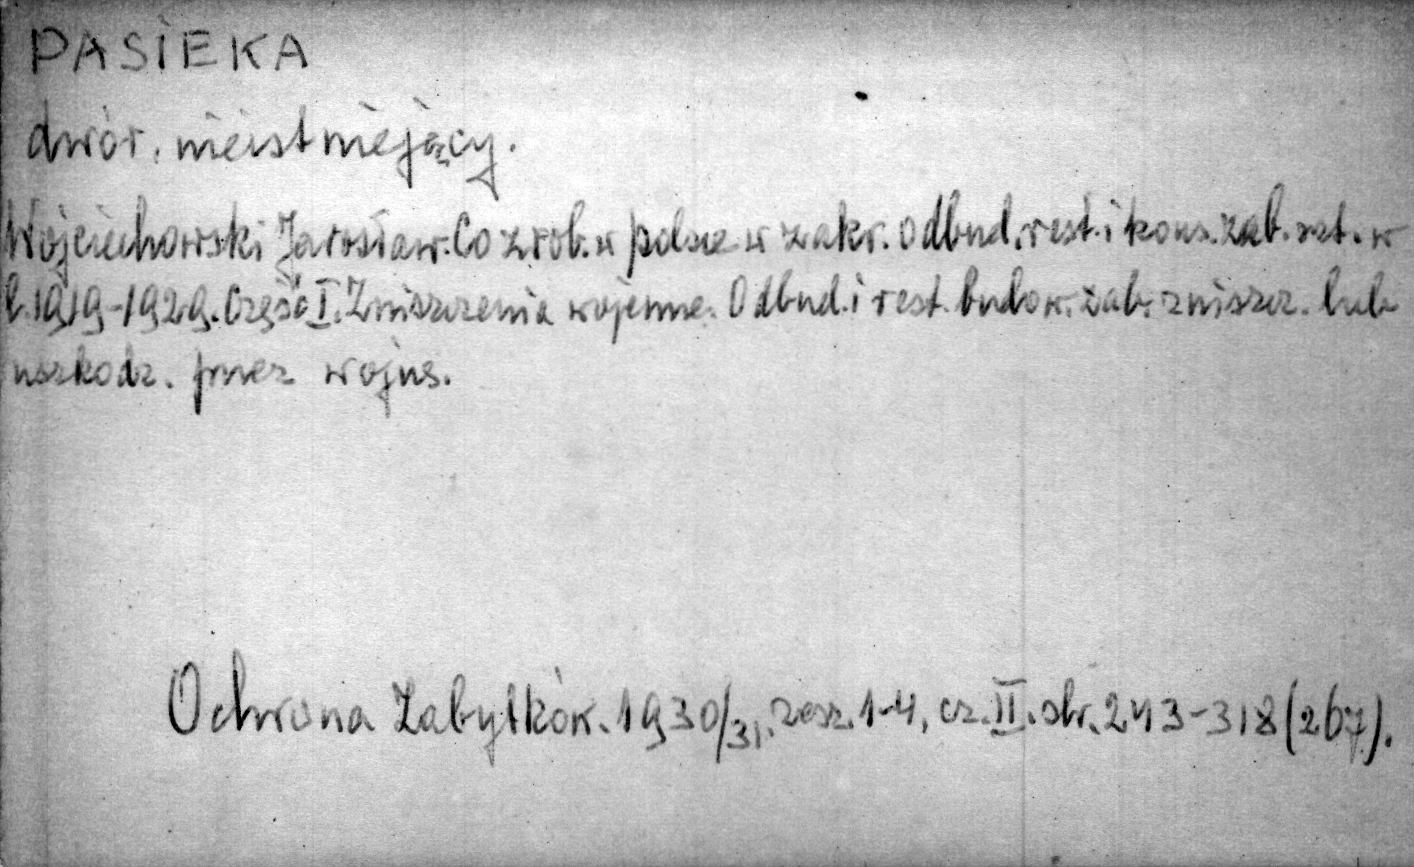 PASIEKA
dwór. nieistniejący.
Wojciechowski Jarosław. Co zrob. w Polsce w zakr. odbud. rest. i kons. zab. szt. w
l. 1919-1929. Część I. Zniszczenia wojenne. Odbud. i rest. budow. zab. zniszcz. lub
uszkodz. przez wojnę.
Ochrona Zabytków. 1930/31. zesz. 1-4, cz. II. str. 243-318 (267).